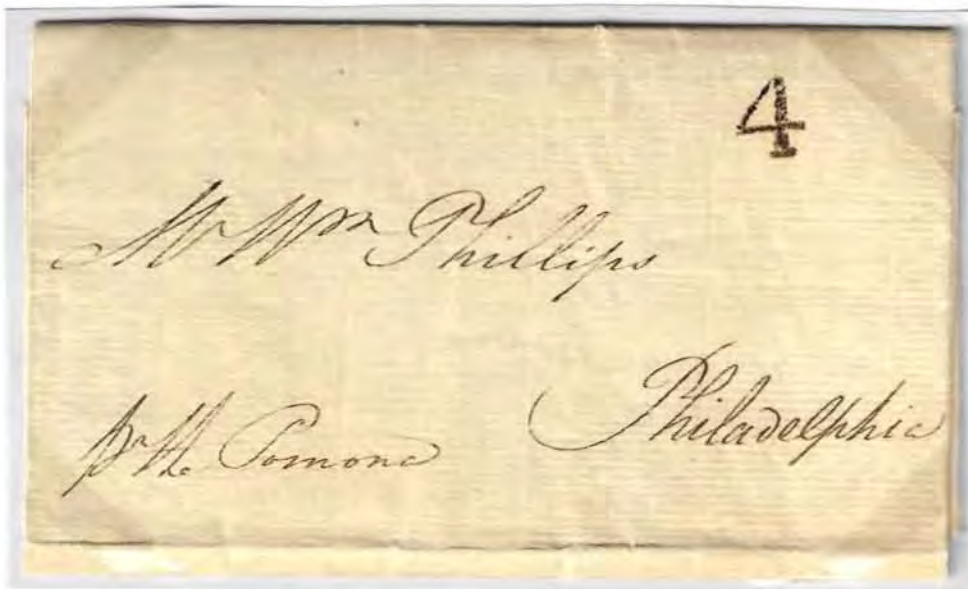 4
Mr Wm Phillips
Philadelphia
pr the Pomona